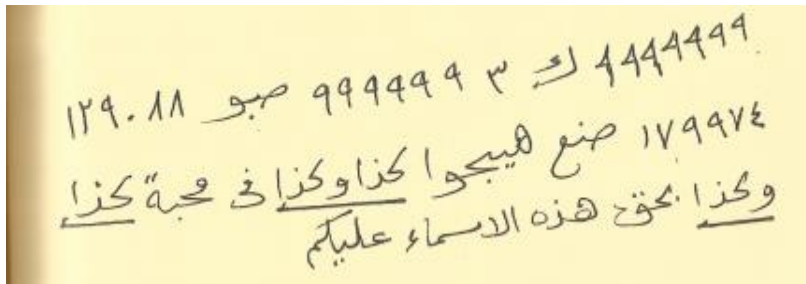 ٩٩٩٩٩٩٩ ك ٣ ٩٩٩٩٩٩ صبو ١٢٩٠٨٨
١٧٩٩٧٤ صنع هيجوا كذا وكذا فى محبة كذا
وكذا بحق هذه الاسماء عليكم